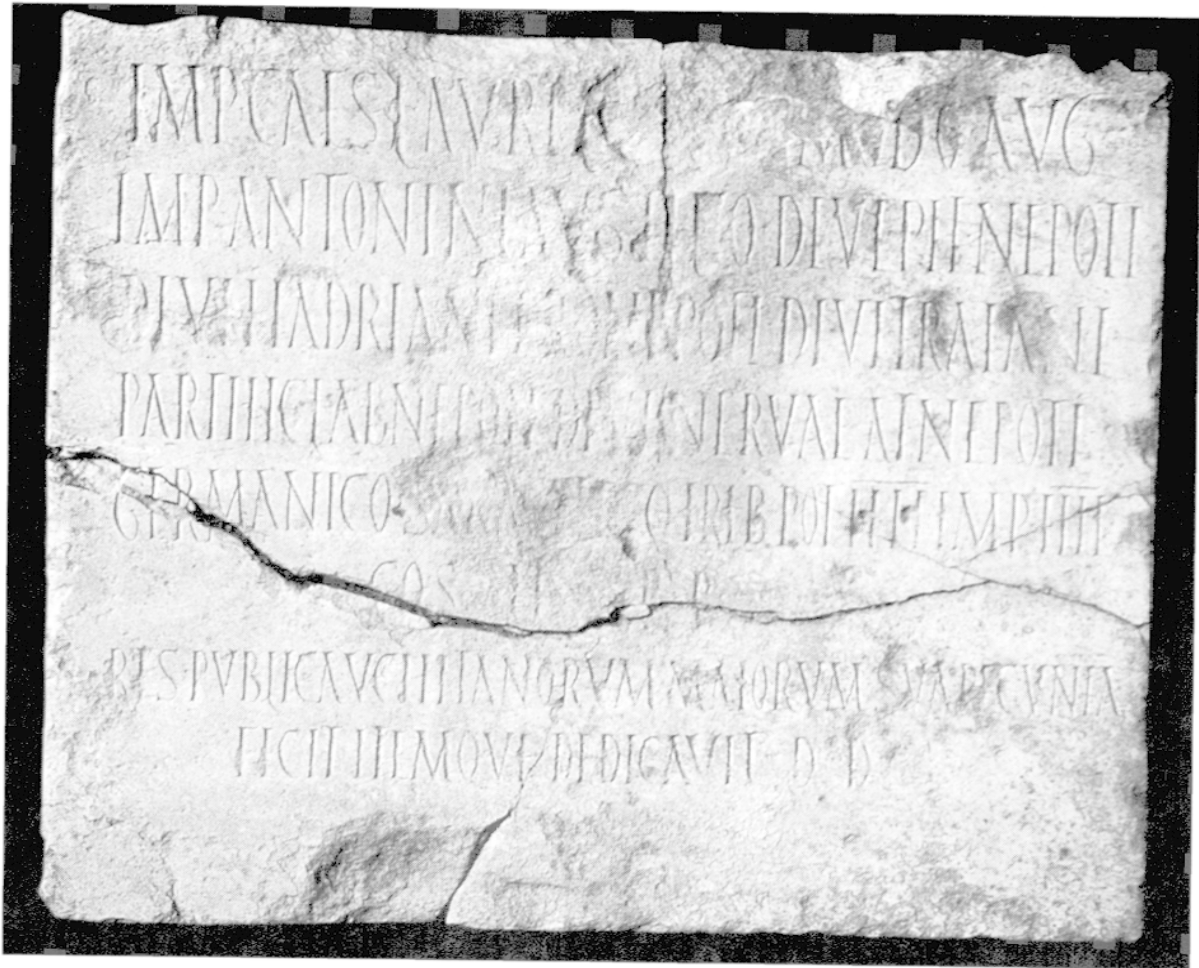 IMP CAES L AVRE MODO AVG
IMP ANTONINI AVG DIVI PII NEPOTI
DIVI HADRIANI PRONEPOTI DIVI TRAIANI
PARTHICI ABNEPOTI DIVI NERVAE ATNEPOTI
GERMANICO TRIB POT IIII IMP IIII
COS II P
RES PVBLICA VCHITANORVM MAIORVM SVA PECVNIA
FECIT ITEMQVE DEDICAVIT D D